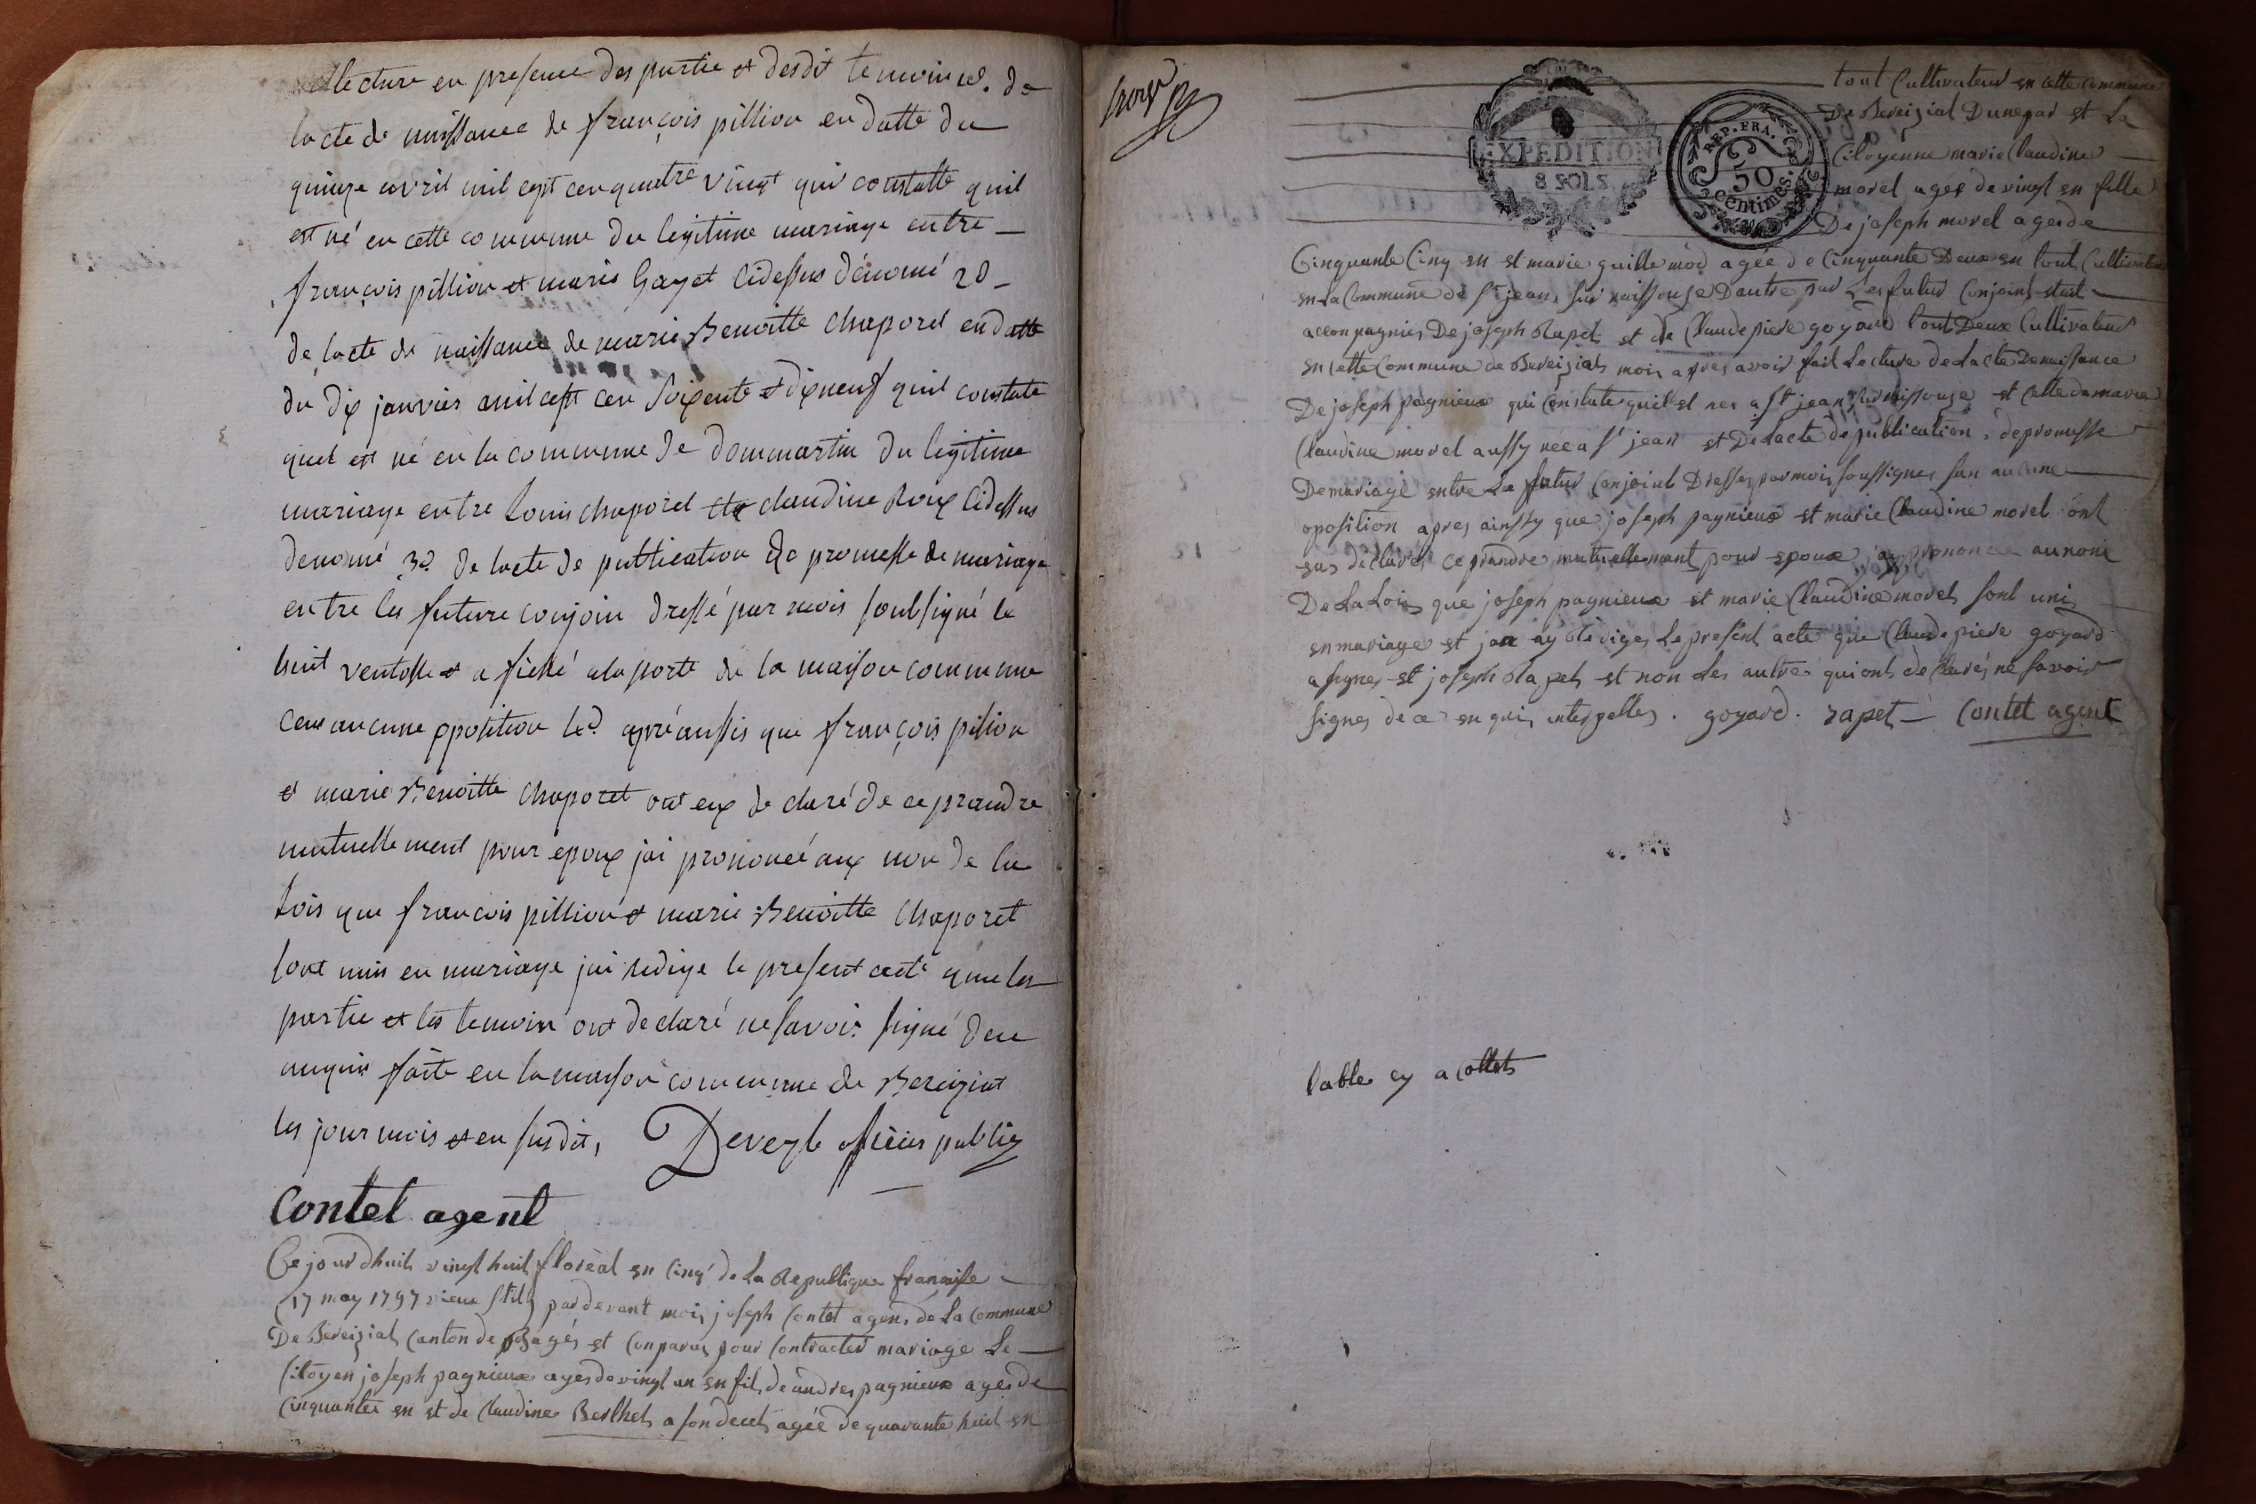 lecture en presence des partie et desdit temoin 1º. de
lacte de naissance de françois pillion en datte du
quinze avril mil cept cen quatre vingt qui constatte quil
est né en cette commune du legitime mariage entre
françois pillion et marie Gayet cidessus dénomé 2º
de lacte de naissance de marie Benoitte chaporet en datte
du dix janvier mil cept cen soixente et dixneuf quil constate
quel est né en la commune de dommartin du légitime
mariage entre Louis chaporet et claudine Roux cidessus
denomé 3º. de lacte de publication de promesse de mariage
entre les future conjoin dressé par mois soubsigné le
huit ventosse et afiché a la porte de la maison commune
cens aucune opposition le apré aussis que françois pilion
et marie Benoitte chaporet ont eux declaré de ce prandre
mutuellement pour epoux jai prononcé aux non de la
Lois que francois pillion et marie Benoitte chaporet
sont unis en mariage jai redige le present acte que les
partie et les temoin ont declaré ne savoir signé den
enquis faite en la maison commune de Bereiziat
les jour mois et en susdit, Deveyle officier public
Contet agent
Ce jourdhuit vingt huit floréal en cinq de la Republique francaise
17 may 1797 vieux stile pardevant mois joseph Contet agent de la Commune
De Bereiziat Canton de Bagés et Conparus pour Contracter mariage Le
Citoyen joseph pagnieux agés de vingt un en fils de andres pagnieux agés de
Cinquantes en et de Claudine Berthet a son decet agée de quarante huit en
EXPEDITION
8 SOLS
REP. FRA.
50
Centimes.
tout Cultivateur en cette commune
De Bereiziat Dunepar et La
Citoyenne marie Claudine
morel agée de vingt en fille
De joseph morel agés de
Cinquante Cinq en et marie guillemod agée de Cinquante Deux en tout Cultivateur
en La Commune de St jean sur raissouse Dautre par Les futur Conjoint etent
acconpagnies De joseph Rapet et de Claudepiere goyard tout Deux Cultivateur
en cette Commune de Bereiziat mois apres avoir fait Lecture de Lacte De naissance
De joseph pagnieux qui Constate quil est nee a St jean sur raissouse et Celle de marie
Claudine morel aussy née a St jean et De Lacte de publication, de promesse
De mariage entre Le futur Conjoint Dresses par mois soussignes san aucune
oposition apres ainssy que joseph pagnieux et marie Claudine morel ont
eus déclarés ce prandre mutuellemant pour epoux jay prononcee au nom
De La Lois que joseph pagnieux et marie Claudine morel sont unis
en mariage et jan ay rédiges Le present acte que Claude piere goyard
a signes et joseph Rapet et non Les autres qui ont declarés ne savoir
signes de ce enquis interpelles. goyard. rapet Contet agent
table cy a collet